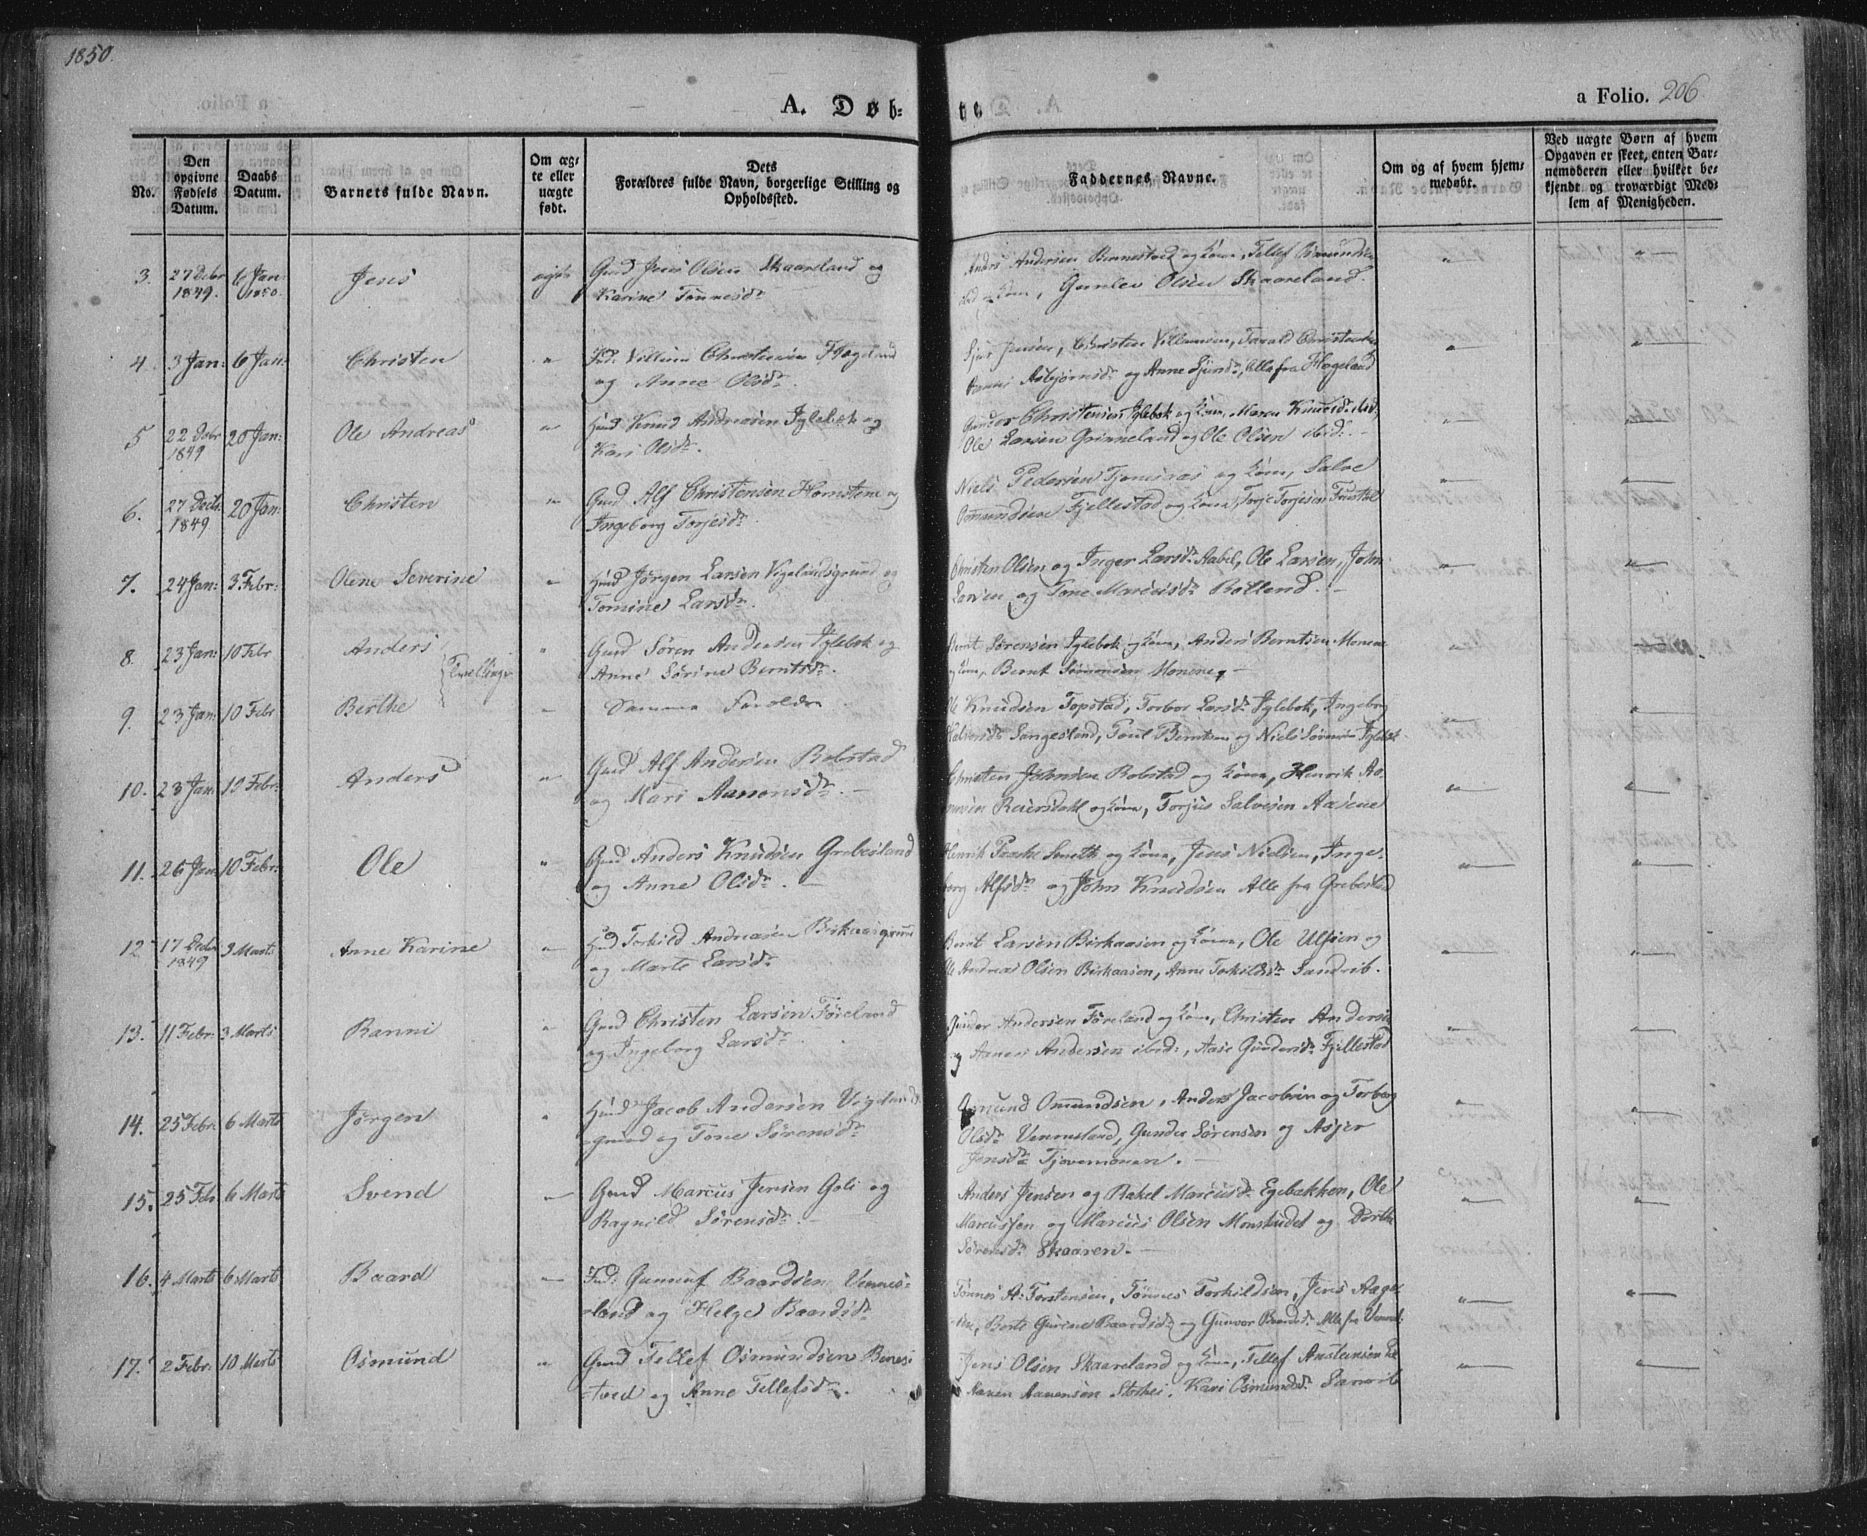 1850.
A. Døb-
te
a Folio. 206.
No.
Den opgivne Fødsels Datum.
Daabs Datum.
Barnets fulde Navn.
Om ægte eller uægte født.
Dets
Forældres fulde Navn, borgerlige Stilling og
Opholdssted.
Faddernes Navne.
Om og af hvem hjemmedøbt.
Ved uægte Børn af hvem
Opgaven er skeet, enten Bar-
nemoderen eller hvilket be-
kjendt og troværdigt Med-
lem af Menigheden.
3. 27 Debr 1849. 6 Jan: 1850. Jens ægte Gmd Jens Olsen Skaareland og
Karine Tønnesdr
Anders Andersen Bennestvedt og Kone, Tellef
Kone, Gunlev Olsen Skaareland.
4. 3 Jan: 6 Jan: Christen " Villum Christensen Hægeland
og Anne Olsdr.
Jensen, Christen Villumsen, Tarald Christensen
Asbjørnsdr og Anne Sjursdr, Alle fra Hægeland
5 22 Debr 1849 20 Jan: Ole Andreas " Knud Andersen Iglebæk og
Kari Olsdr.
Gunder Christensen Iglebæk og Kone, Maren Knudsdr ibid,
Ole Larsen Grinneland og Ole Olsen ibid. -
6. 27 Decbr. 1849 20 Jan: Christen " Gmd Alf Christensen Homstene og
Ingeborg Torjesdr.
Niels Pedersen Tjomsaas og Kone, Salve
Omundsen Fjellestad og Kone, Torje Torjesen
7. 24 Jan: 3 Febr: Olene Severine " Hmd Jørgen Larsen Vigelandsgrund og
Tomine Larsdr.
Christen Olsen og Inger Larsdr Aabel, Ole Larsen, John
Larsen og Tone Marcusdr Rølland. -
8. 23 Jan: 10 Febr Anders } Tvillinger " Gmd Søren Andersen Iglebæk og
Anne Sørine Berntsdr.
Bernt Sørensen Iglebæk og Kone, Anders Berntsen Monene
og Kone, Bernt Sørensen Monene, -
9. 23 Jan: 10 Febr Berthe " Samme Forældre
Ole Knudsen Topstad, Torbor Larsdr Iglebæk, Ingeborg
Halvorsdr Langeland, Poul Berntsen og Niels Sørensen Iglebæk
10. 23 Jan: 10 Febr: Anders " Gmd Alf Andersen Robstad
og Mari Aanonsdr. -
Christen Johnsen Robstad og Kone, Henrik Aa-
nonsen Reiersdahl og Kone, Torjus Salvesen Aasene
11. 26 Jan 10 Febr: Ole " Gmd Anders Knudsen Grebesland
og Anne Olsdr. -
Henrik Paaske Smith og Kone, Jens Nielsen, Inge-
borg Alfsdr og John Knudsen Alle fra Grebesland
12. 17 Decbr 1849 3 Marts Anne Karine " Hmd Torkild Andreasen Birkaasgrund
og Marte Larsdr
Bernt Larsen Birkaasen og Kone, Ole Ulfsen og
Ole Andreas Olsen Birkaasen, Anne Torkildsdr Sandrib.
13. 11 Febr: 3 Marts Ranni " Gmd Christen Larsen Føreland
og Ingeborg Larsdr.
Gunder Andersen Føreland og Kone, Christen Andersen
og Andersen ibid:, Aase Gundersdr Fjellestad
14. 25 Febr: 6 Marts Jørgen " Hmd Jacob Andersen Vigelands
grund og Tone Sørensdr
Omund Omundsen, Anders Jacobsen og Torborg
Olsdr Vennesland, Gunder Sørensen og Asjer
Jensdr Tjovemoven. -
15. 25 Febr. 6 Marts Svend " Gmd Marcus Jensen Gali og
Ragnild Sørensdr. -
Anders Jensen og Rakel Marcusdr Egebakken, Ole
Marcussen og Marcus Olsen Monstudet og Dorthe
Sørensdr Skaaren. -
16. 4 Marts 6 Marts Baard " Gunnuf Baardsen Vennes-
land og Helge Baardsdr
Tønnes A: Torstensen, Tønnes Torkildsen, Jens Aage-
sen, Berte Gurine Baardsdr og Gunvor Baardsdr Alle fra Vennesl:
17. 2 Febr. 10 Marts Osmund " Gmd Tellef Osmundsen Bennes-
tved og Anne Tellefsdr.
Jens Olsen Skaareland og Kone, Tellef Anstensen
Aanen Aanensen Stokes, Kari Osmundsdr Sanrib